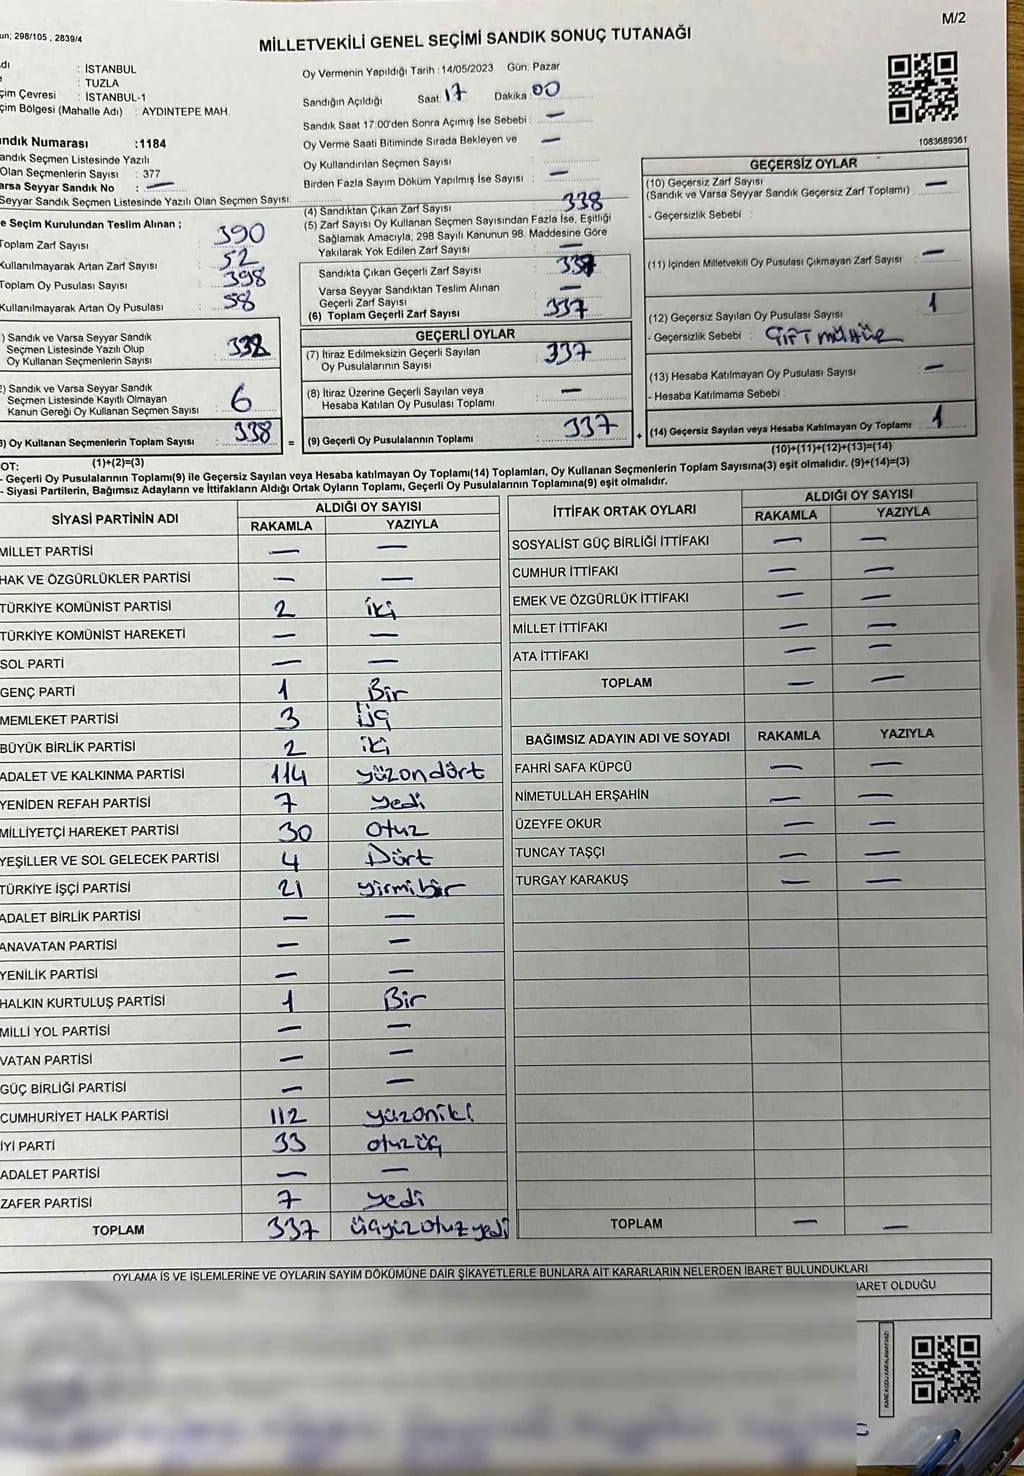 M/2
un; 298/105 , 2839/4
MİLLETVEKİLİ GENEL SEÇİMİ SANDIK SONUÇ TUTANAĞI
dı : İSTANBUL
: TUZLA
çim Çevresi : İSTANBUL-1
çim Bölgesi (Mahalle Adı) : AYDINTEPE MAH
Oy Vermenin Yapıldığı Tarih : 14/05/2023 Gün: Pazar
Sandığın Açıldığı Saat: 17 Dakika : 00
Sandık Saat 17:00'den Sonra Açımış İse Sebebi : —
Oy Verme Saati Bitiminde Sırada Bekleyen ve —
Oy Kullandırılan Seçmen Sayısı :
Birden Fazla Sayım Döküm Yapılmış İse Sayısı : —
1083689361
ndık Numarası :1184
andık Seçmen Listesinde Yazılı
Olan Seçmenlerin Sayısı : 377
arsa Seyyar Sandık No : —
Seyyar Sandık Seçmen Listesinde Yazılı Olan Seçmen Sayısı:
e Seçim Kurulundan Teslim Alınan ;
Toplam Zarf Sayısı : 390
Kullanılmayarak Artan Zarf Sayısı : 52
Toplam Oy Pusulası Sayısı : 398
Kullanılmayarak Artan Oy Pusulası : 58
) Sandık ve Varsa Seyyar Sandık
Seçmen Listesinde Yazılı Olup
Oy Kullanan Seçmenlerin Sayısı :
2) Sandık ve Varsa Seyyar Sandık
Seçmen Listesinde Kayıtlı Olmayan
Kanun Gereği Oy Kullanan Seçmen Sayısı : 6
3) Oy Kullanan Seçmenlerin Toplam Sayısı : 338
(1)+(2)=(3)
(4) Sandıktan Çıkan Zarf Sayısı : 338
(5) Zarf Sayısı Oy Kullanan Seçmen Sayısından Fazla İse, Eşitliği
Sağlamak Amacıyla, 298 Sayılı Kanunun 98. Maddesine Göre
Yakılarak Yok Edilen Zarf Sayısı : —
Sandıkta Çıkan Geçerli Zarf Sayısı :
Varsa Seyyar Sandıktan Teslim Alınan
Geçerli Zarf Sayısı : —
(6) Toplam Geçerli Zarf Sayısı : 337
GEÇERLİ OYLAR
(7) İtiraz Edilmeksizin Geçerli Sayılan
Oy Pusulalarının Sayısı : 337
(8) İtiraz Üzerine Geçerli Sayılan veya
Hesaba Katılan Oy Pusulası Toplamı : —
= (9) Geçerli Oy Pusulalarının Toplamı : 337
GEÇERSİZ OYLAR
(10) Geçersiz Zarf Sayısı
(Sandık ve Varsa Seyyar Sandık Geçersiz Zarf Toplamı) : —
- Geçersizlik Sebebi :
(11) İçinden Milletvekili Oy Pusulası Çıkmayan Zarf Sayısı : —
(12) Geçersiz Sayılan Oy Pusulası Sayısı : 1
- Geçersizlik Sebebi : ÇİFT MÜHÜR
(13) Hesaba Katılmayan Oy Pusulası Sayısı : —
- Hesaba Katılmama Sebebi :
+ (14) Geçersiz Sayılan veya Hesaba Katılmayan Oy Toplamı : 1
(10)+(11)+(12)+(13)=(14)
OT:
- Geçerli Oy Pusulalarının Toplamı(9) ile Geçersiz Sayılan veya Hesaba katılmayan Oy Toplamı(14) Toplamları, Oy Kullanan Seçmenlerin Toplam Sayısına(3) eşit olmalıdır. (9)+(14)=(3)
- Siyasi Partilerin, Bağımsız Adayların ve İttifakların Aldığı Ortak Oyların Toplamı, Geçerli Oy Pusulalarının Toplamına(9) eşit olmalıdır.
SİYASİ PARTİNİN ADI ALDIĞI OY SAYISI
RAKAMLA YAZIYLA
MİLLET PARTİSİ — —
HAK VE ÖZGÜRLÜKLER PARTİSİ — —
TÜRKİYE KOMÜNİST PARTİSİ 2 iki
TÜRKİYE KOMÜNİST HAREKETİ — —
SOL PARTİ — —
GENÇ PARTİ 1 Bir
MEMLEKET PARTİSİ 3 Üç
BÜYÜK BİRLİK PARTİSİ 2 iki
ADALET VE KALKINMA PARTİSİ 114 yüzondört
YENİDEN REFAH PARTİSİ 7 yedi
MİLLİYETÇİ HAREKET PARTİSİ 30 otuz
YEŞİLLER VE SOL GELECEK PARTİSİ 4 Dört
TÜRKİYE İŞÇİ PARTİSİ 21 yirmibir
ADALET BİRLİK PARTİSİ — —
ANAVATAN PARTİSİ — —
YENİLİK PARTİSİ — —
HALKIN KURTULUŞ PARTİSİ 1 Bir
MİLLİ YOL PARTİSİ — —
VATAN PARTİSİ — —
GÜÇ BİRLİĞİ PARTİSİ — —
CUMHURİYET HALK PARTİSİ 112 yüzoniki
İYİ PARTİ 33 otuzüç
ADALET PARTİSİ — —
ZAFER PARTİSİ 7 yedi
TOPLAM 337 üçyüzotuzyedi
İTTİFAK ORTAK OYLARI ALDIĞI OY SAYISI
RAKAMLA YAZIYLA
SOSYALİST GÜÇ BİRLİĞİ İTTİFAKI — —
CUMHUR İTTİFAKI — —
EMEK VE ÖZGÜRLÜK İTTİFAKI — —
MİLLET İTTİFAKI — —
ATA İTTİFAKI — —
TOPLAM — —
BAĞIMSIZ ADAYIN ADI VE SOYADI RAKAMLA YAZIYLA
FAHRİ SAFA KÜPCÜ — —
NİMETULLAH ERŞAHİN — —
ÜZEYFE OKUR — —
TUNCAY TAŞÇI — —
TURGAY KARAKUŞ — —
TOPLAM — —
OYLAMA İŞ VE İŞLEMLERİNE VE OYLARIN SAYIM DÖKÜMÜNE DAİR ŞİKAYETLERLE BUNLARA AİT KARARLARIN NELERDEN İBARET BULUNDUKLARI
BARET OLDUĞU